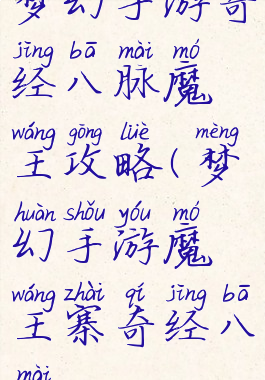 梦幻手游奇
jīng bā mài mó
经八脉魔
wáng gōng lüè mèng
王攻略(梦
huàn shǒu yóu mó
幻手游魔
wáng zhài qí jīng bā
王寨奇经八
mài